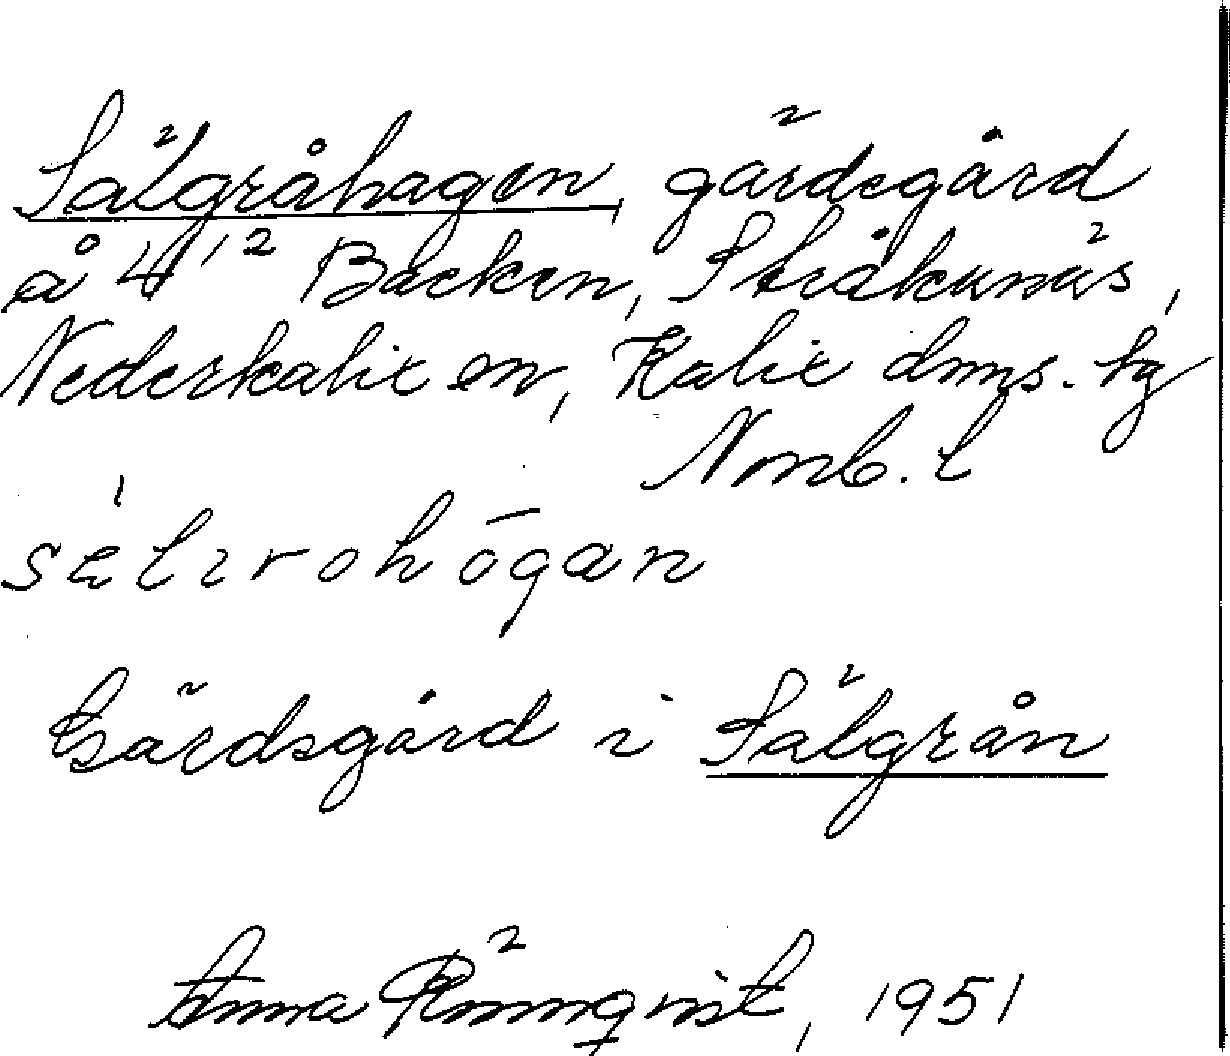 Sälgråhagen, gärdegård
å 4¹² Backen, Stråkanäs,
Nederkalix sn, Kalix dmns. tg
Nmb. l
Gärdsgård i Sälgrån
Anna Rönnqvist, 1951